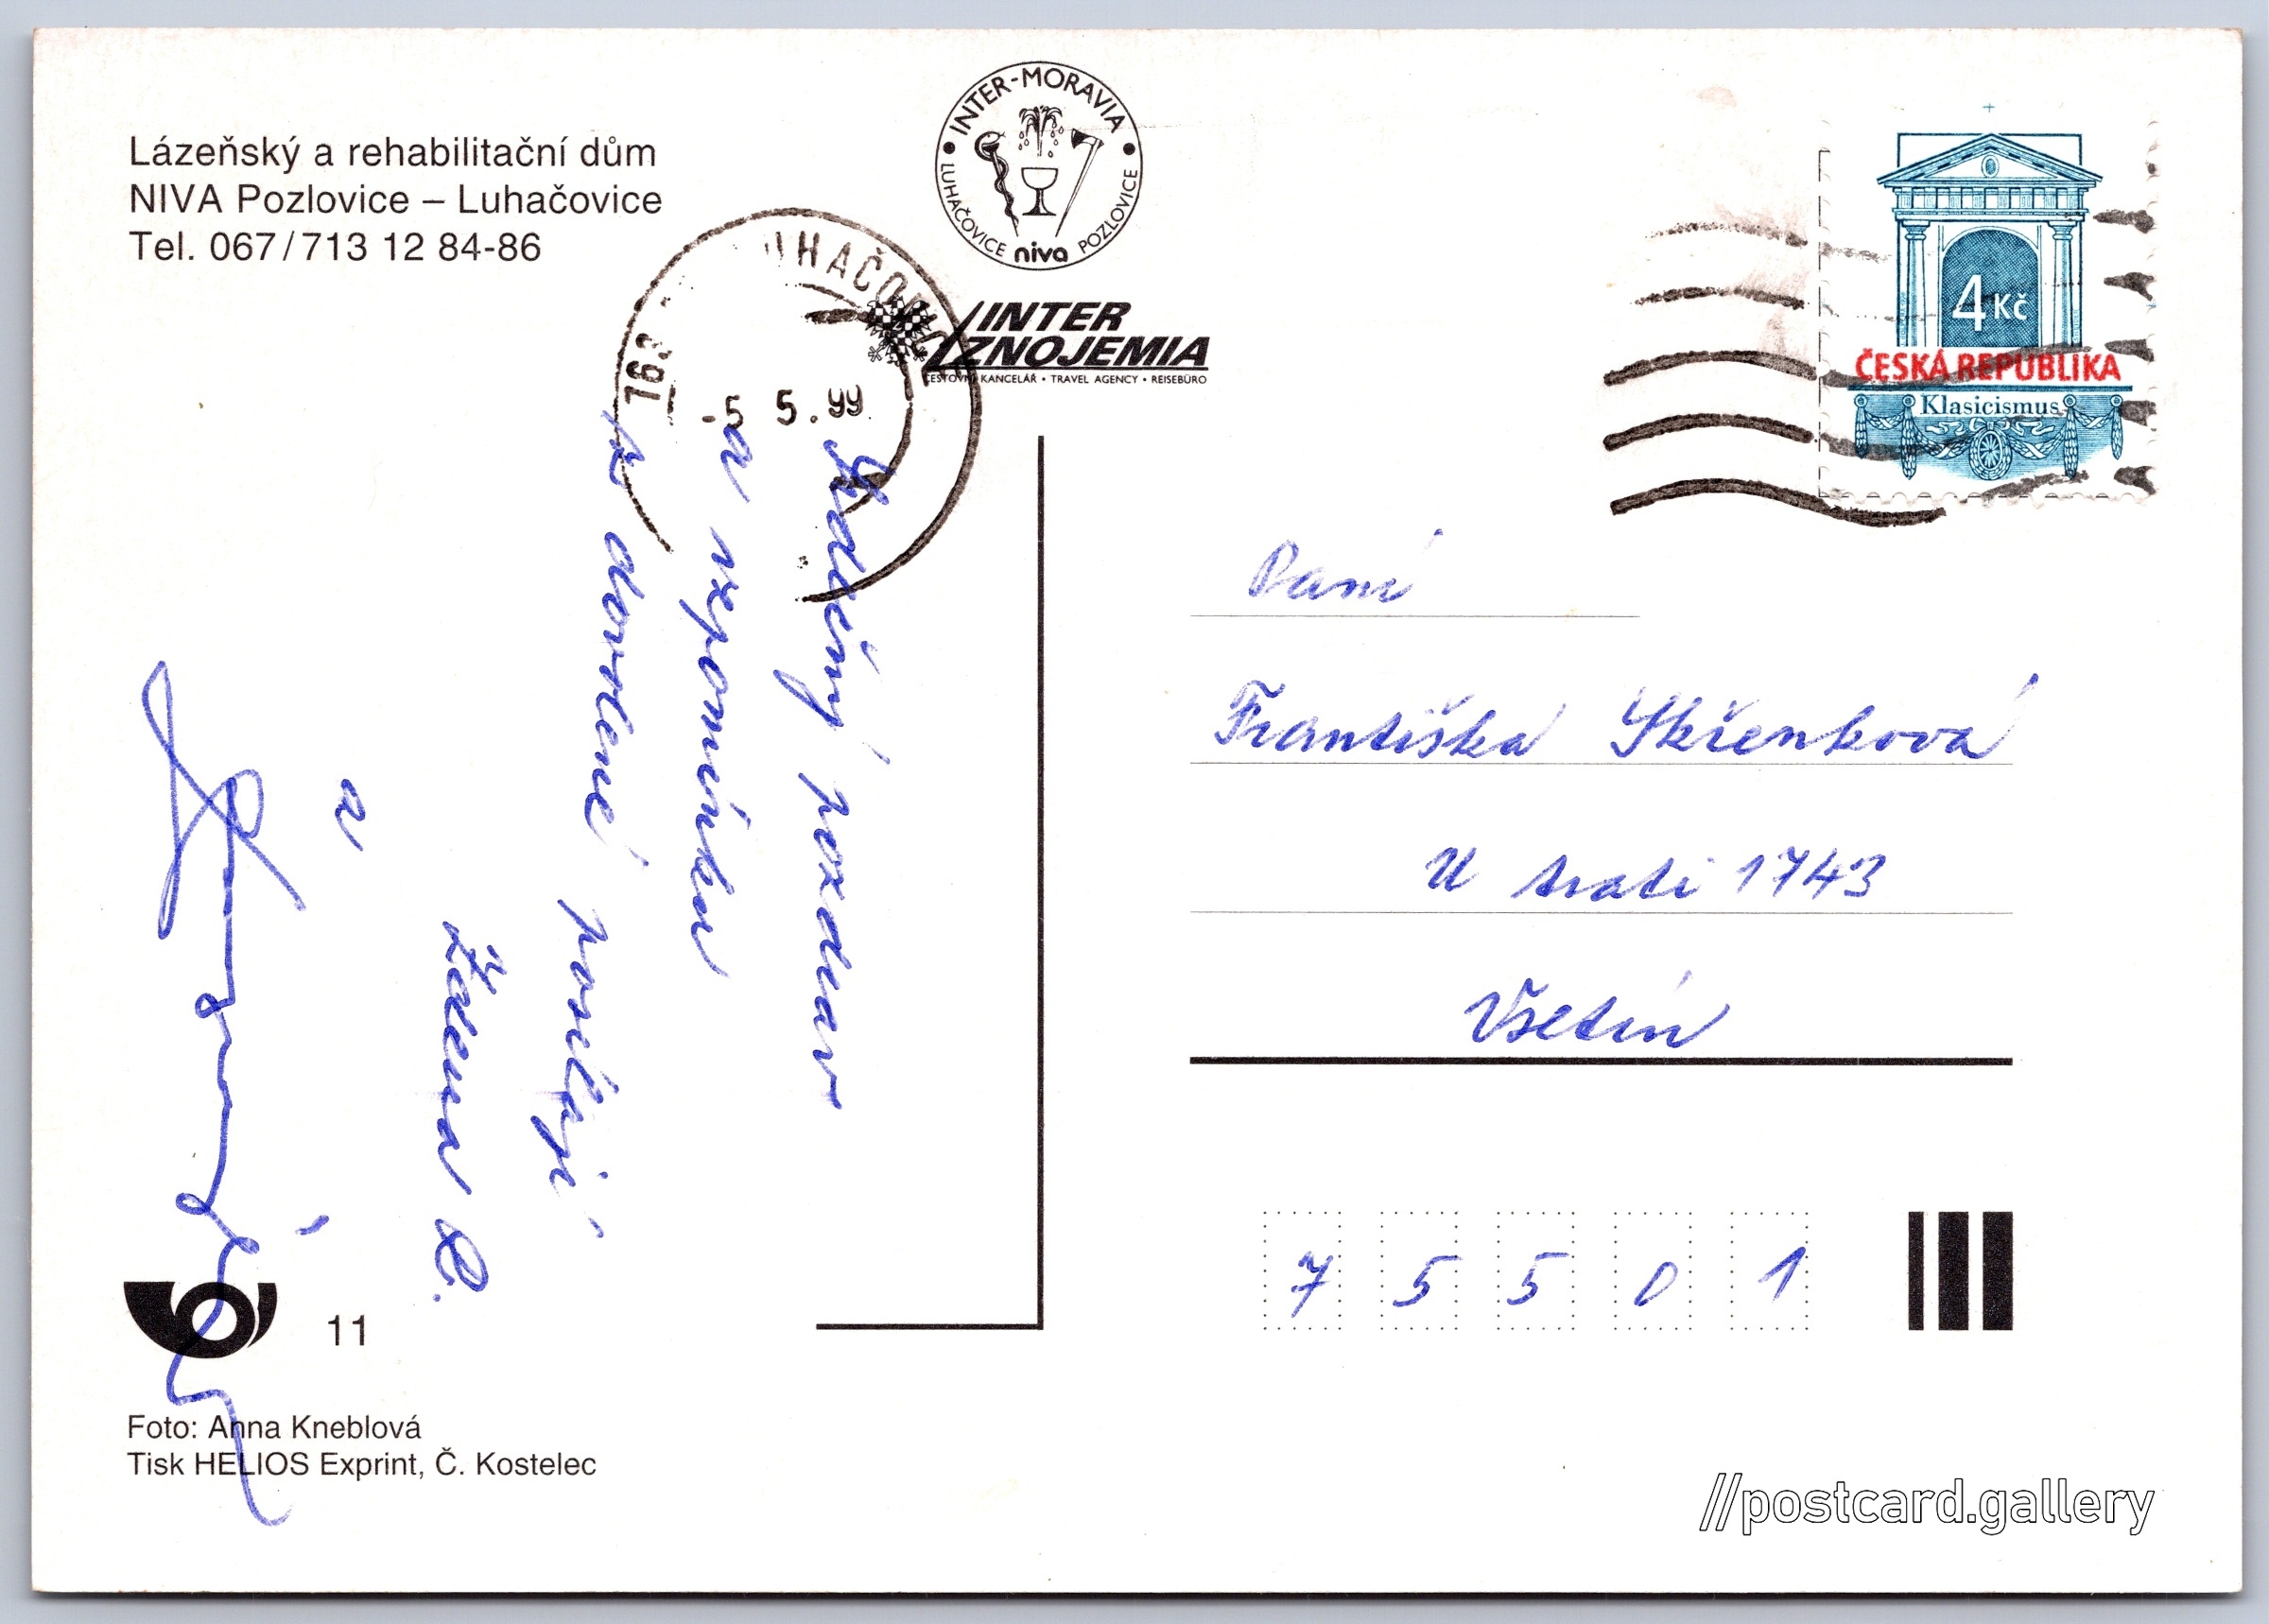 Lázeňský a rehabilitační dům
NIVA Pozlovice – Luhačovice
Tel. 067/713 12 84-86
INTER-MORAVIA
LUHAČOVICE niva POZLOVICE
INTER
ZNOJEMIA
CESTOVNÍ KANCELÁŘ • TRAVEL AGENCY • REISEBÜRO
UHAČOVICE
-5 5.99
4 Kč
ČESKÁ REPUBLIKA
Klasicismus
Srdečný pozdrav
a vzpomínku
z dovolené posílají
Zdena R.
a
Paní
Františka Skřenková
U trati 1743
Vsetín
7 5 5 0 1
11
Foto: Anna Kneblová
Tisk HELIOS Exprint, Č. Kostelec
//postcard.gallery